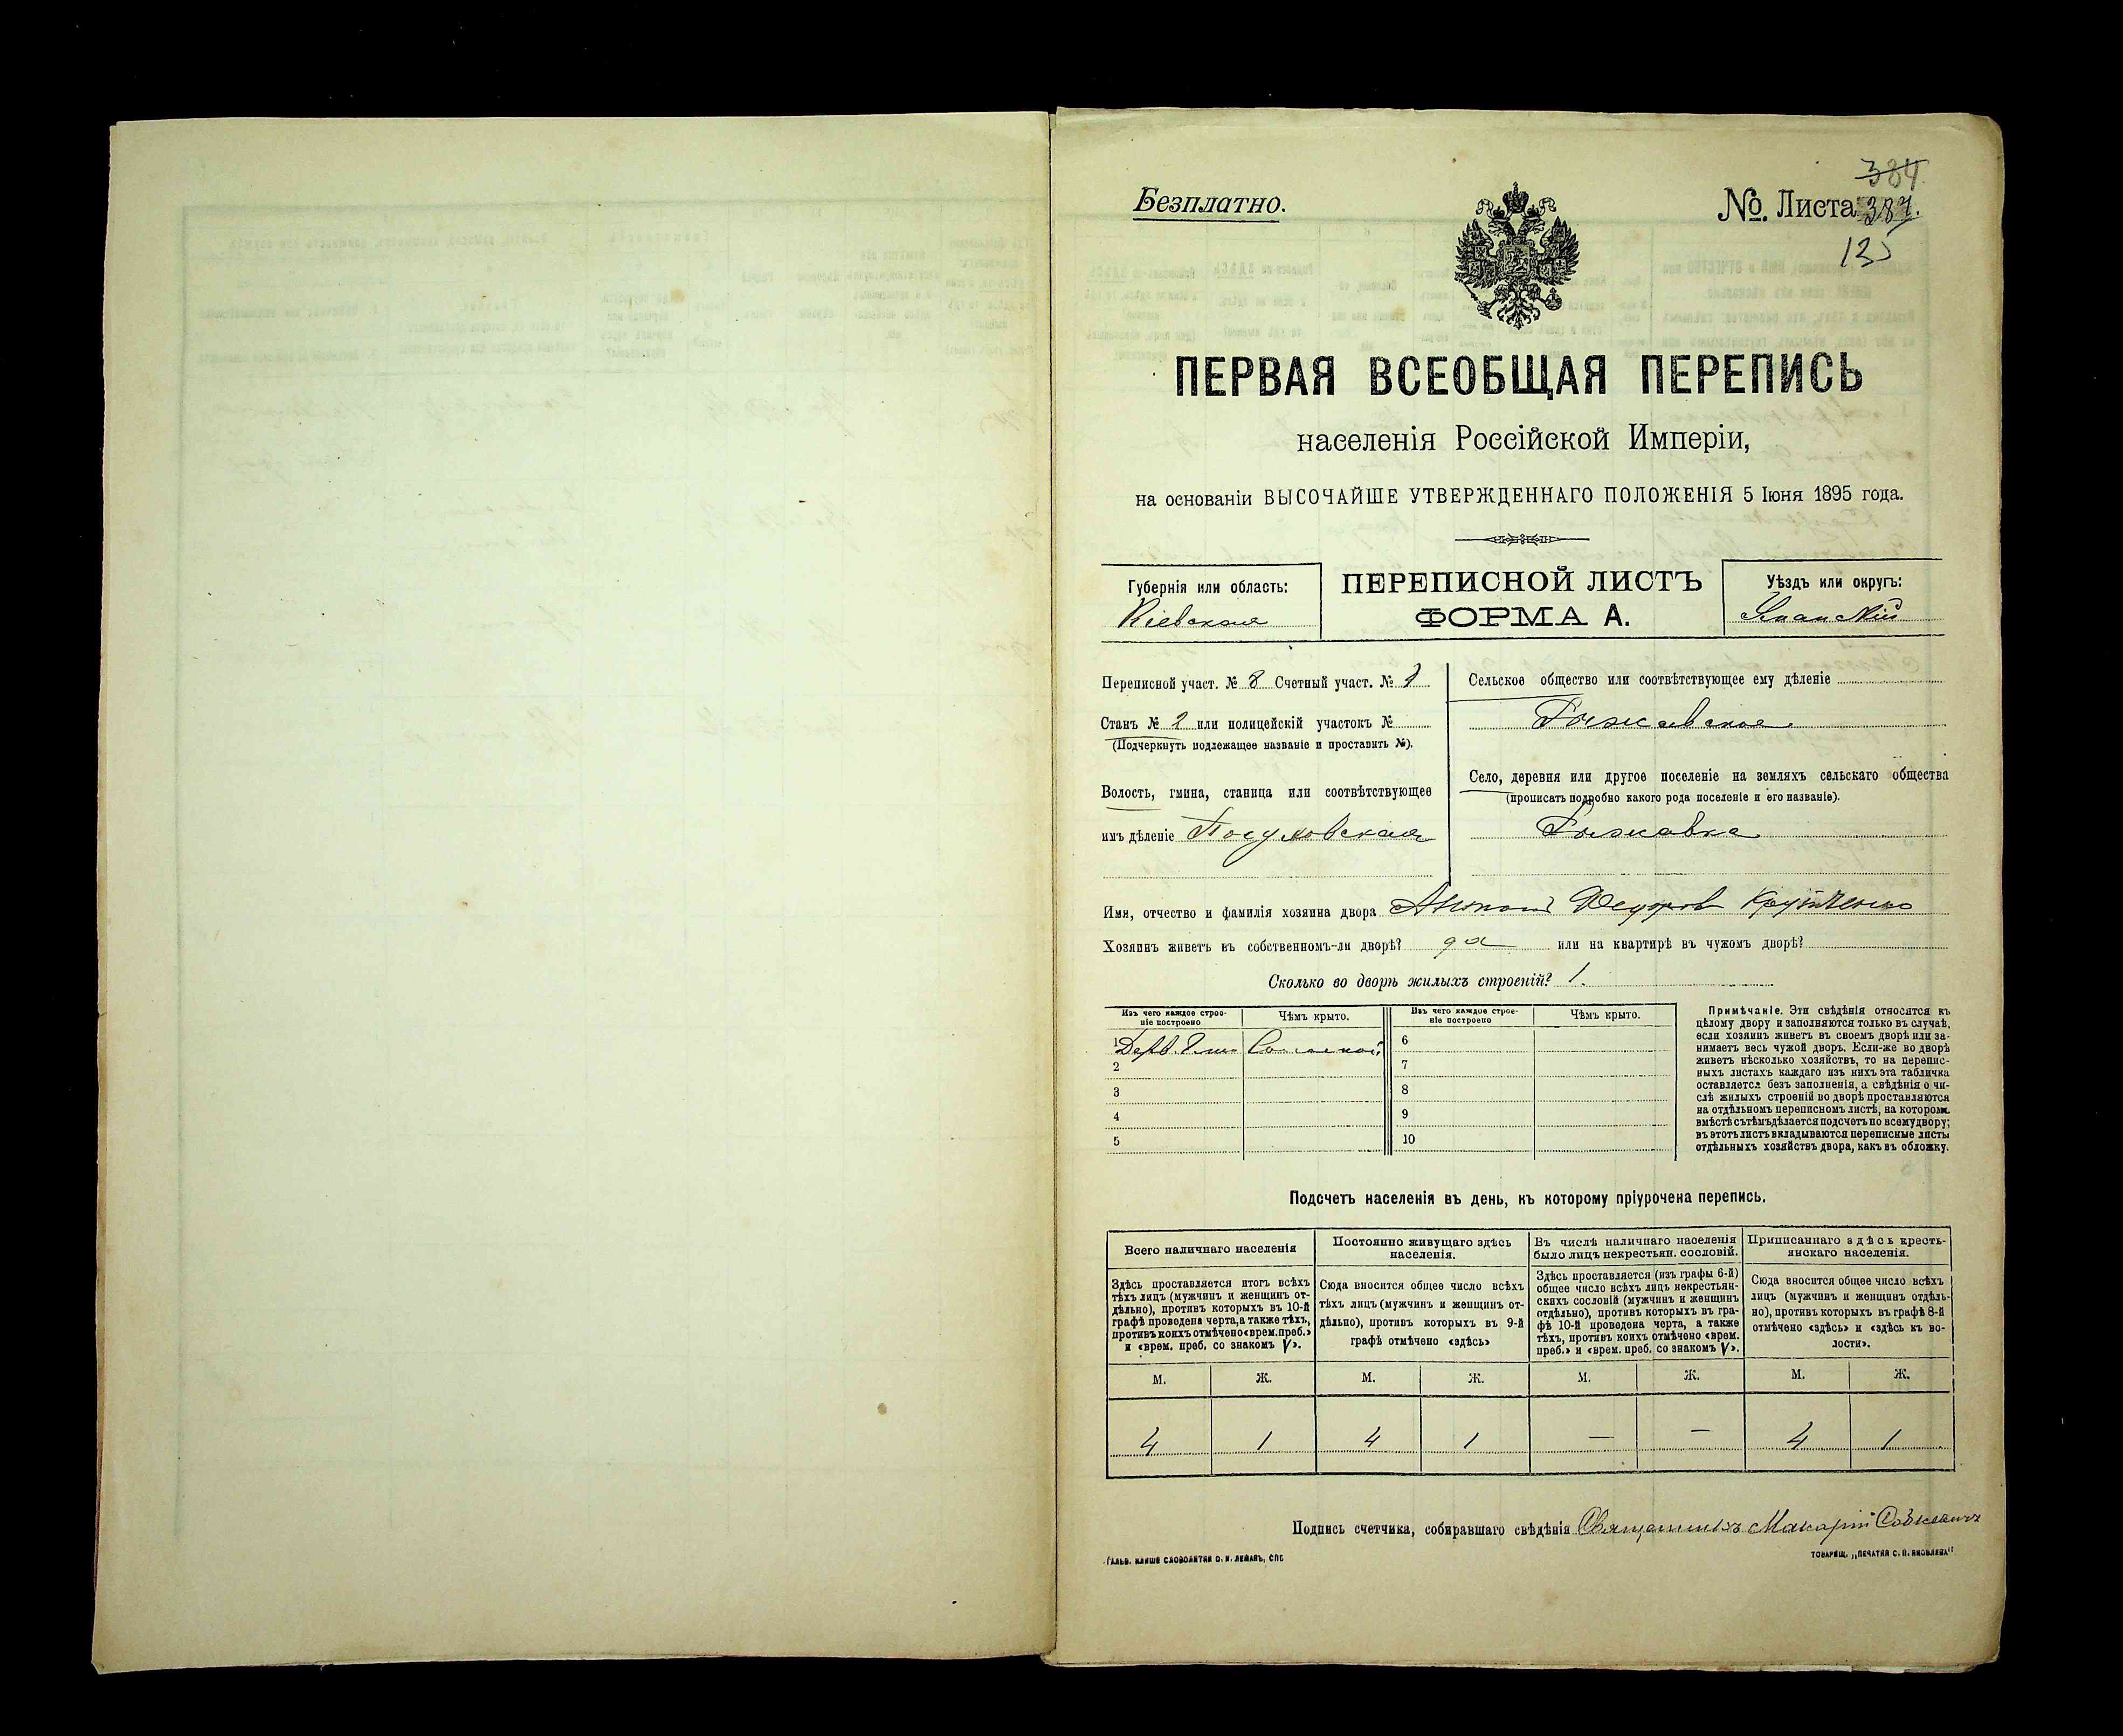 384.
Безплатно.
№. Листа 387.
125
ПЕРВАЯ ВСЕОБЩАЯ ПЕРЕПИСЬ
населенія Россійской Имперіи,
на основаніи ВЫСОЧАЙШЕ УТВЕРЖДЕННАГО ПОЛОЖЕНІЯ 5 Іюня 1895 года.
Губернія или область:
Кіевская
ПЕРЕПИСНОЙ ЛИСТЪ
ФОРМА А.
Уѣздъ или округъ:
Переписной участ. № 8 Счетный участ. № 1
Станъ № 2 или полицейскій участокъ №
(Подчеркнуть подлежащее названіе и проставить №).
Волость, гмина, станица или соотвѣтствующее
имъ дѣленіе
Сельское общество или соотвѣтствующее ему дѣленіе
Село, деревня или другое поселеніе на земляхъ сельскаго общества
(прописать подробно какого рода поселеніе и его названіе).
Имя, отчество и фамилія хозяина двора
Хозяинъ живетъ въ собственномъ-ли дворѣ? да или на квартирѣ въ чужомъ дворѣ?
Сколько во дворѣ жилыхъ строеній? 1.
Изъ чего каждое строе-
ніе построено
Чѣмъ крыто.
1 Дерв. Соломой
2
3
4
5
Изъ чего каждое строе-
ніе построено
Чѣмъ крыто.
6
7
8
9
10
Примѣчаніе. Эти свѣдѣнія относятся къ
цѣлому двору и заполняются только въ случаѣ,
если хозяинъ живетъ въ своемъ дворѣ или за-
нимаетъ весь чужой дворъ. Если-же во дворѣ
живетъ нѣсколько хозяйствъ, то на перепис-
ныхъ листахъ каждаго изъ нихъ эта табличка
оставляется безъ заполненія, а свѣдѣнія о чи-
слѣ жилыхъ строеній во дворѣ проставляются
на отдѣльномъ переписномъ листѣ, на которомъ
вмѣстѣ съ тѣмъ дѣлается подсчетъ по всему двору;
въ этотъ листъ вкладываются переписные листы
отдѣльныхъ хозяйствъ двора, какъ въ обложку.
Подсчетъ населенія въ день, къ которому пріурочена перепись.
Всего наличнаго населенія
Постоянно живущаго здѣсь
населенія.
Въ числѣ наличнаго населенія
было лицъ некрестьян. сословій.
Приписаннаго здѣсь кресть-
янскаго населенія.
Здѣсь проставляется итогъ всѣхъ
тѣхъ лицъ (мужчинъ и женщинъ от-
дѣльно), противъ которыхъ въ 10-й
графѣ проведена черта, а также тѣхъ,
противъ коихъ отмѣчено «врем. преб.»
и «врем. преб. со знакомъ V».
Сюда вносится общее число всѣхъ
тѣхъ лицъ (мужчинъ и женщинъ от-
дѣльно), противъ которыхъ въ 9-й
графѣ отмѣчено «здѣсь»
Здѣсь проставляется (изъ графы 6-й)
общее число всѣхъ лицъ некрестьян-
скихъ сословій (мужчинъ и женщинъ
отдѣльно), противъ которыхъ въ гра-
фѣ 10-й проведена черта, а также
тѣхъ, противъ коихъ отмѣчено «врем.
преб.» и «врем. преб. со знакомъ V».
Сюда вносится общее число всѣхъ
лицъ (мужчинъ и женщинъ отдѣль-
но), противъ которыхъ въ графѣ 8-й
отмѣчено «здѣсь» и «здѣсь къ во-
лости».
М. Ж. М. Ж. М. Ж. М. Ж.
4 1 4 1 — — 4 1
Подпись счетчика, собиравшаго свѣдѣнія Священникъ Макарій
ГАЛЬВ. КЛИШЕ СЛОВОЛИТНИ О. И. ЛЕМАНЪ, СПБ
ТОВАРИЩ. „ПЕЧАТНЯ С. П. ЯКОВЛЕВА"